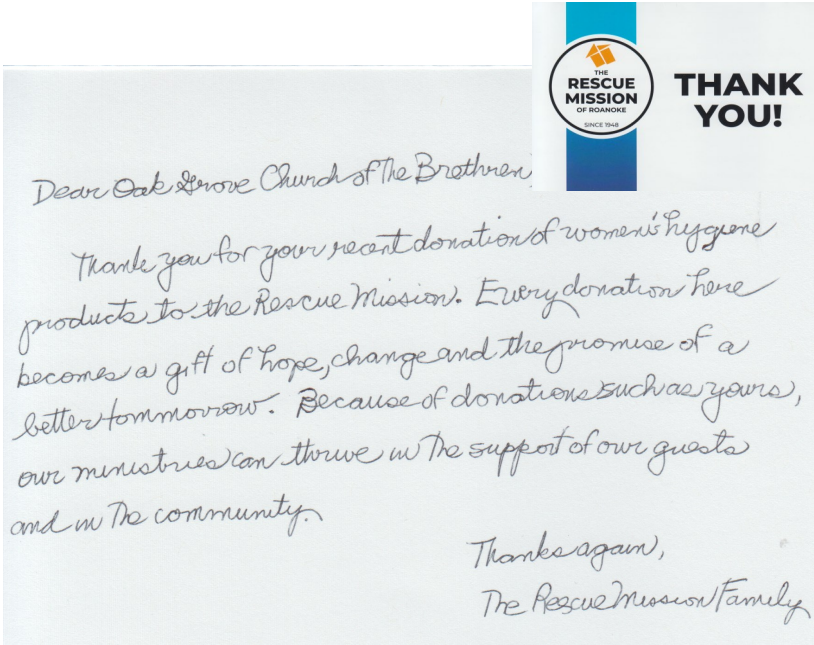 THE
RESCUE
MISSION
OF ROANOKE
SINCE 1948
THANK
YOU!
Dear Oak Grove Church of The Brethren,
Thank you for your recent donation of women's hygiene
products to the Rescue Mission. Every donation here
becomes a gift of hope, change and the promise of a
better tommorrow. Because of donations such as yours,
our ministries can thrive in the support of our guests
and in the community.
Thanks again,
The Rescue Mission Family